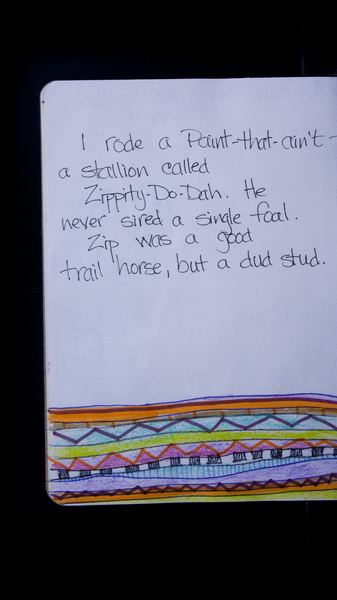 I rode a Paint-that-ain't-
a stallion called
Zippity-Do-Dah. He
never sired a single foal.
Zip was a good
trail horse, but a dud stud.